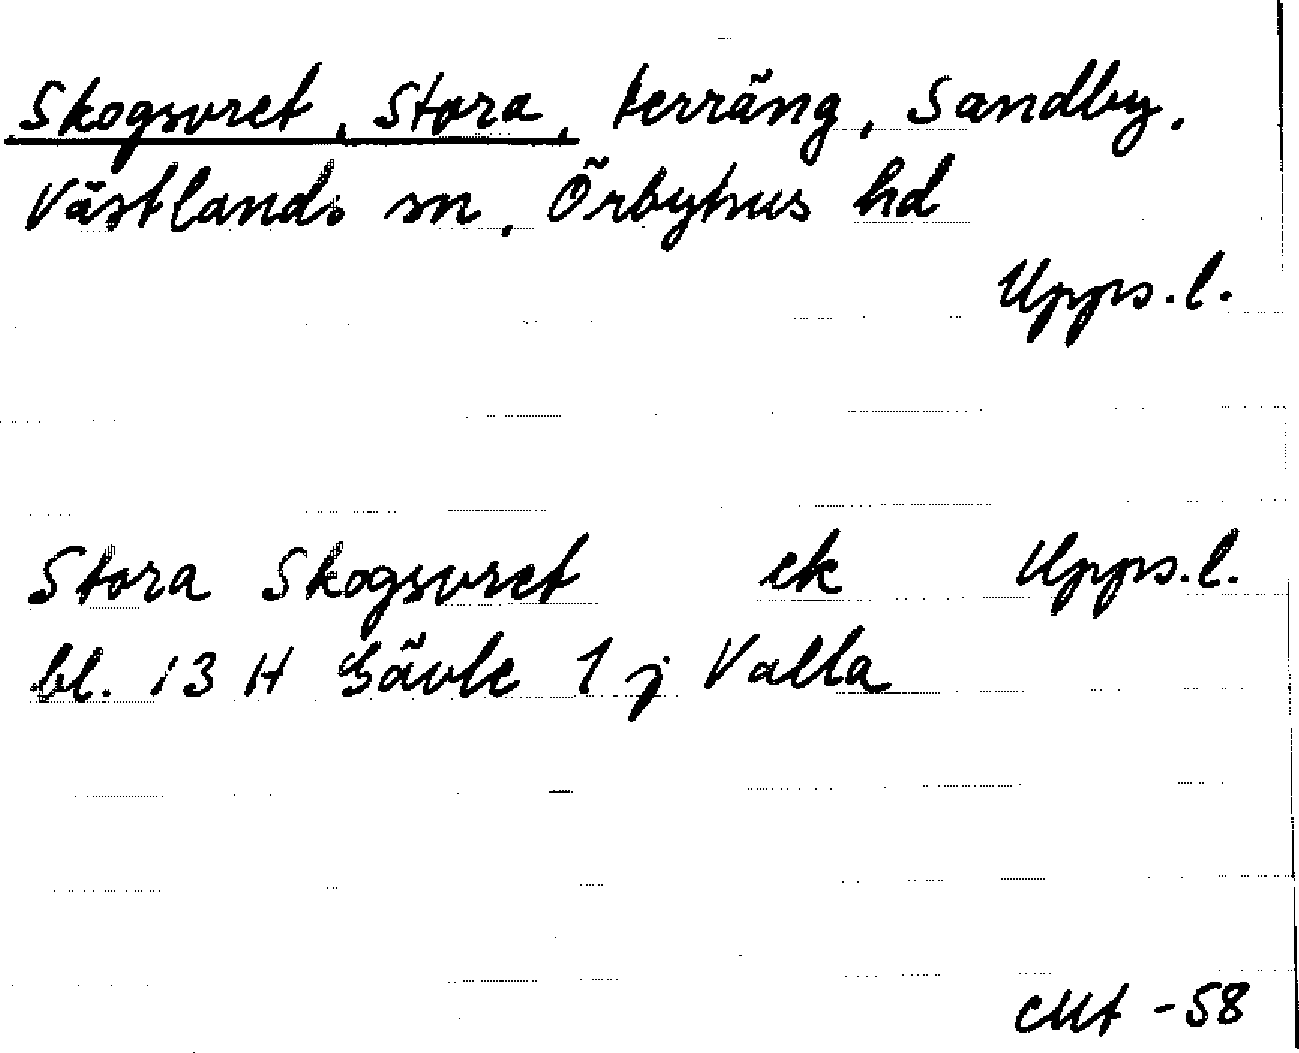 Skogsvret, Stora, terräng, Sandby,
Västlands sn, Örbyhus hd
Upps.l.
Stora Skogsvret ek Upps.l.
bl. 13 H Gävle 1 j Valla
-58